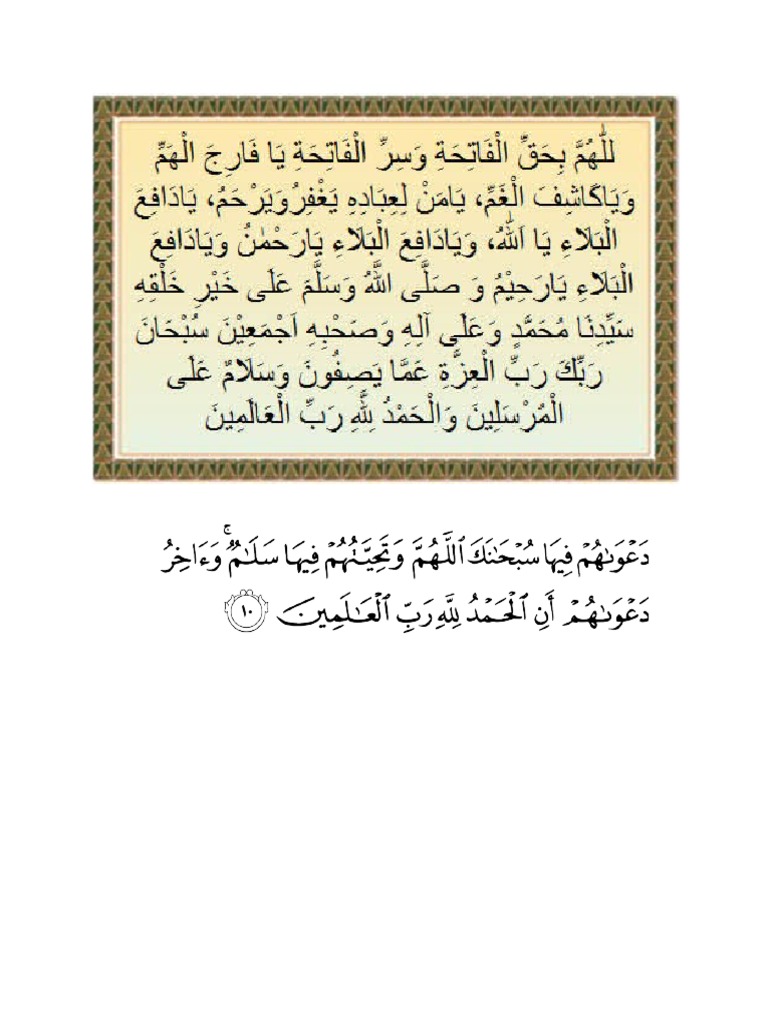 للّٰهُمَّ بِحَقِّ الْفَاتِحَةِ وَسِرِّ الْفَاتِحَةِ يَا فَارِجَ الْهَمِّ
وَيَاكَاشِفَ الْغَمِّ، يَامَنْ لِعِبَادِهِ يَغْفِرُوَيَرْحَمُ، يَادَافِعَ
الْبَلَاءِ يَا اَللّٰهُ، وَيَادَافِعَ الْبَلَاءِ يَارَحْمٰنُ وَيَادَافِعَ
الْبَلَاءِ يَارَحِيْمُ وَ صَلَّى اللَّهُ وَسَلَّمَ عَلَى خَيْرِ خَلْقِهِ
سَيِّدِنَا مُحَمَّدٍ وَعَلَى آلِهِ وَصَحْبِهِ اَجْمَعِيْنَ سُبْحَانَ
رَبِّكَ رَبِّ الْعِزَّةِ عَمَّا يَصِفُونَ وَسَلَامٌ عَلَى
الْمُرْسَلِينَ وَالْحَمْدُ لِلَّهِ رَبِّ الْعَالَمِينَ
دَعْوَىٰهُمْ فِيهَا سُبْحَٰنَكَ ٱللَّهُمَّ وَتَحِيَّتُهُمْ فِيهَا سَلَٰمٌ ۚ وَءَاخِرُ
دَعْوَىٰهُمْ أَنِ ٱلْحَمْدُ لِلَّهِ رَبِّ ٱلْعَٰلَمِينَ ١٠